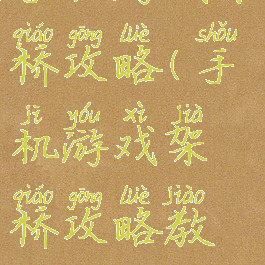 qiáo gōng lüè shǒu
桥攻略(手
jī yóu xì jià
机游戏架
qiáo gōng lüè jiào
桥攻略教